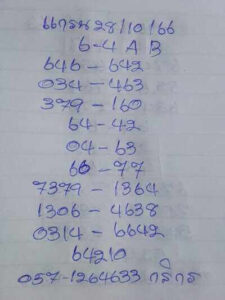 28/10/66
6-4 A B
646 - 642
034 - 463
379 - 160
64 - 42
04 - 63
60 - 77
7379 - 1364
1306 - 4638
0314 - 6642
64210
057-1264633